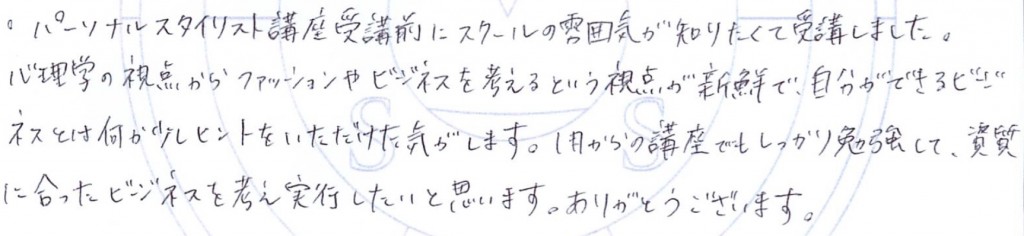 。パーソナルスタイリスト講座受講前にスクールの雰囲気が知りたくて受講しました。
心理学の視点からファッションやビジネスを考えるという視点が新鮮で、自分ができるビジ
ネスとは何か少しヒントをいただけた気がします。1月からの講座でもしっかり勉強して、資質
に合ったビジネスを考え実行したいと思います。ありがとうございます。
S S